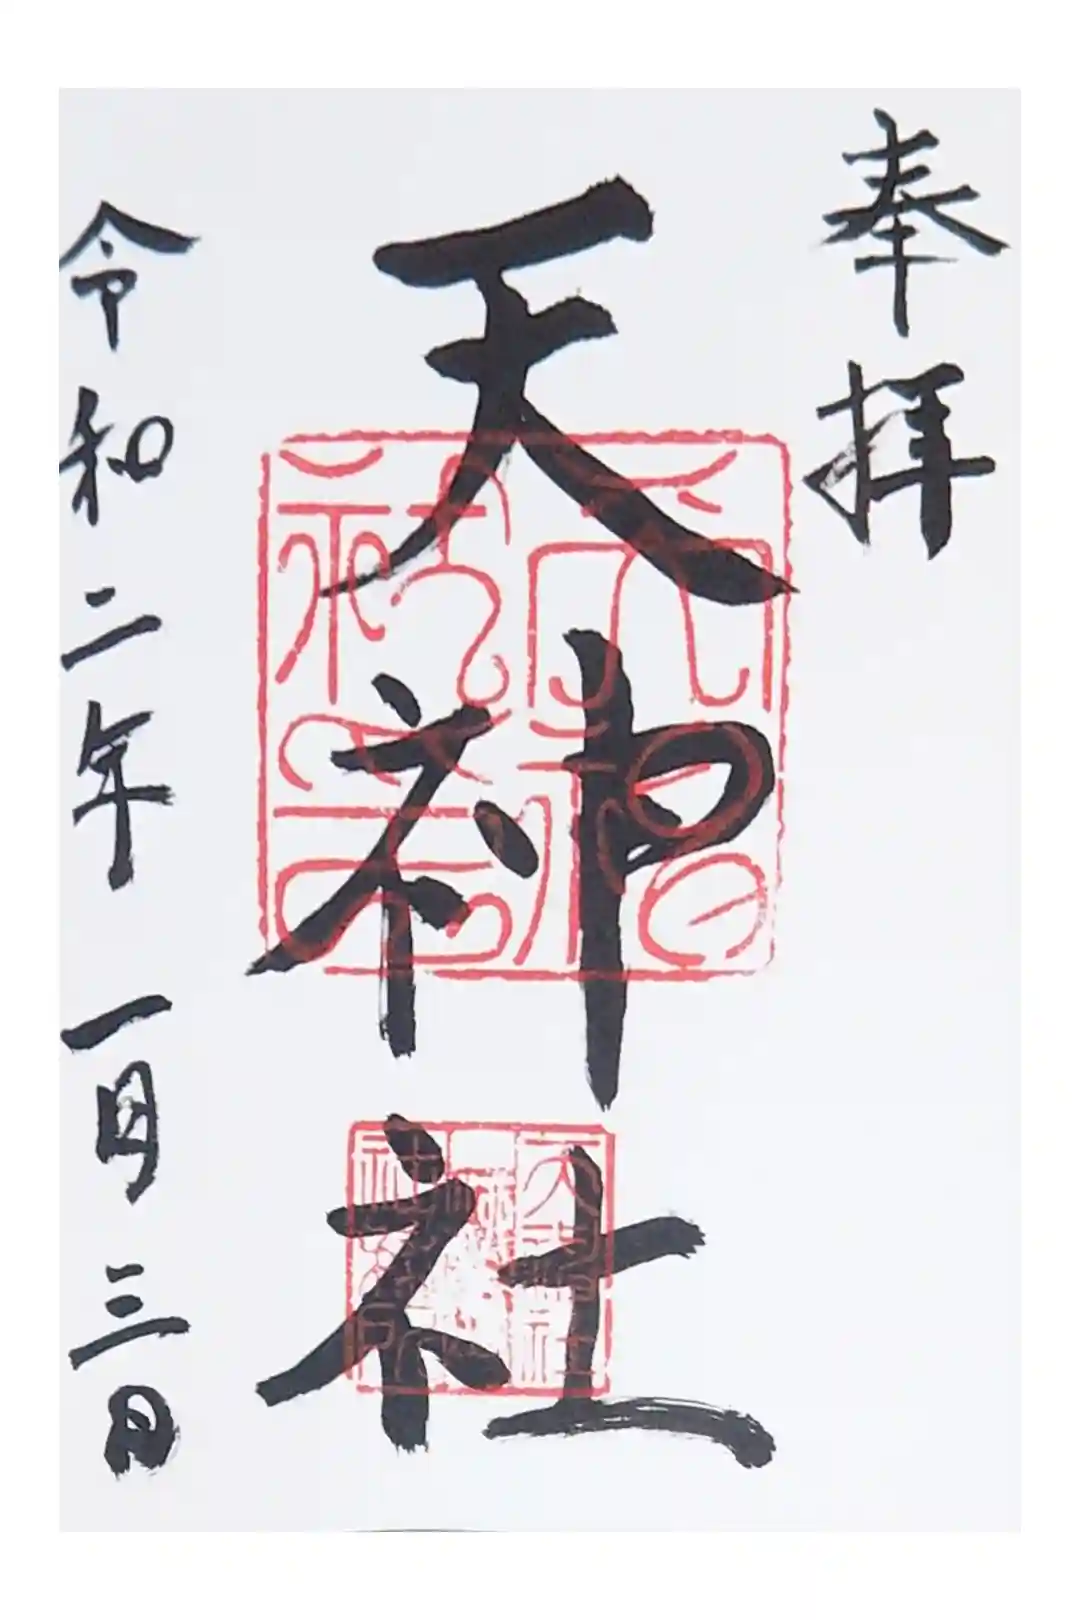 奉拝
天神社
令和二年 一月三日